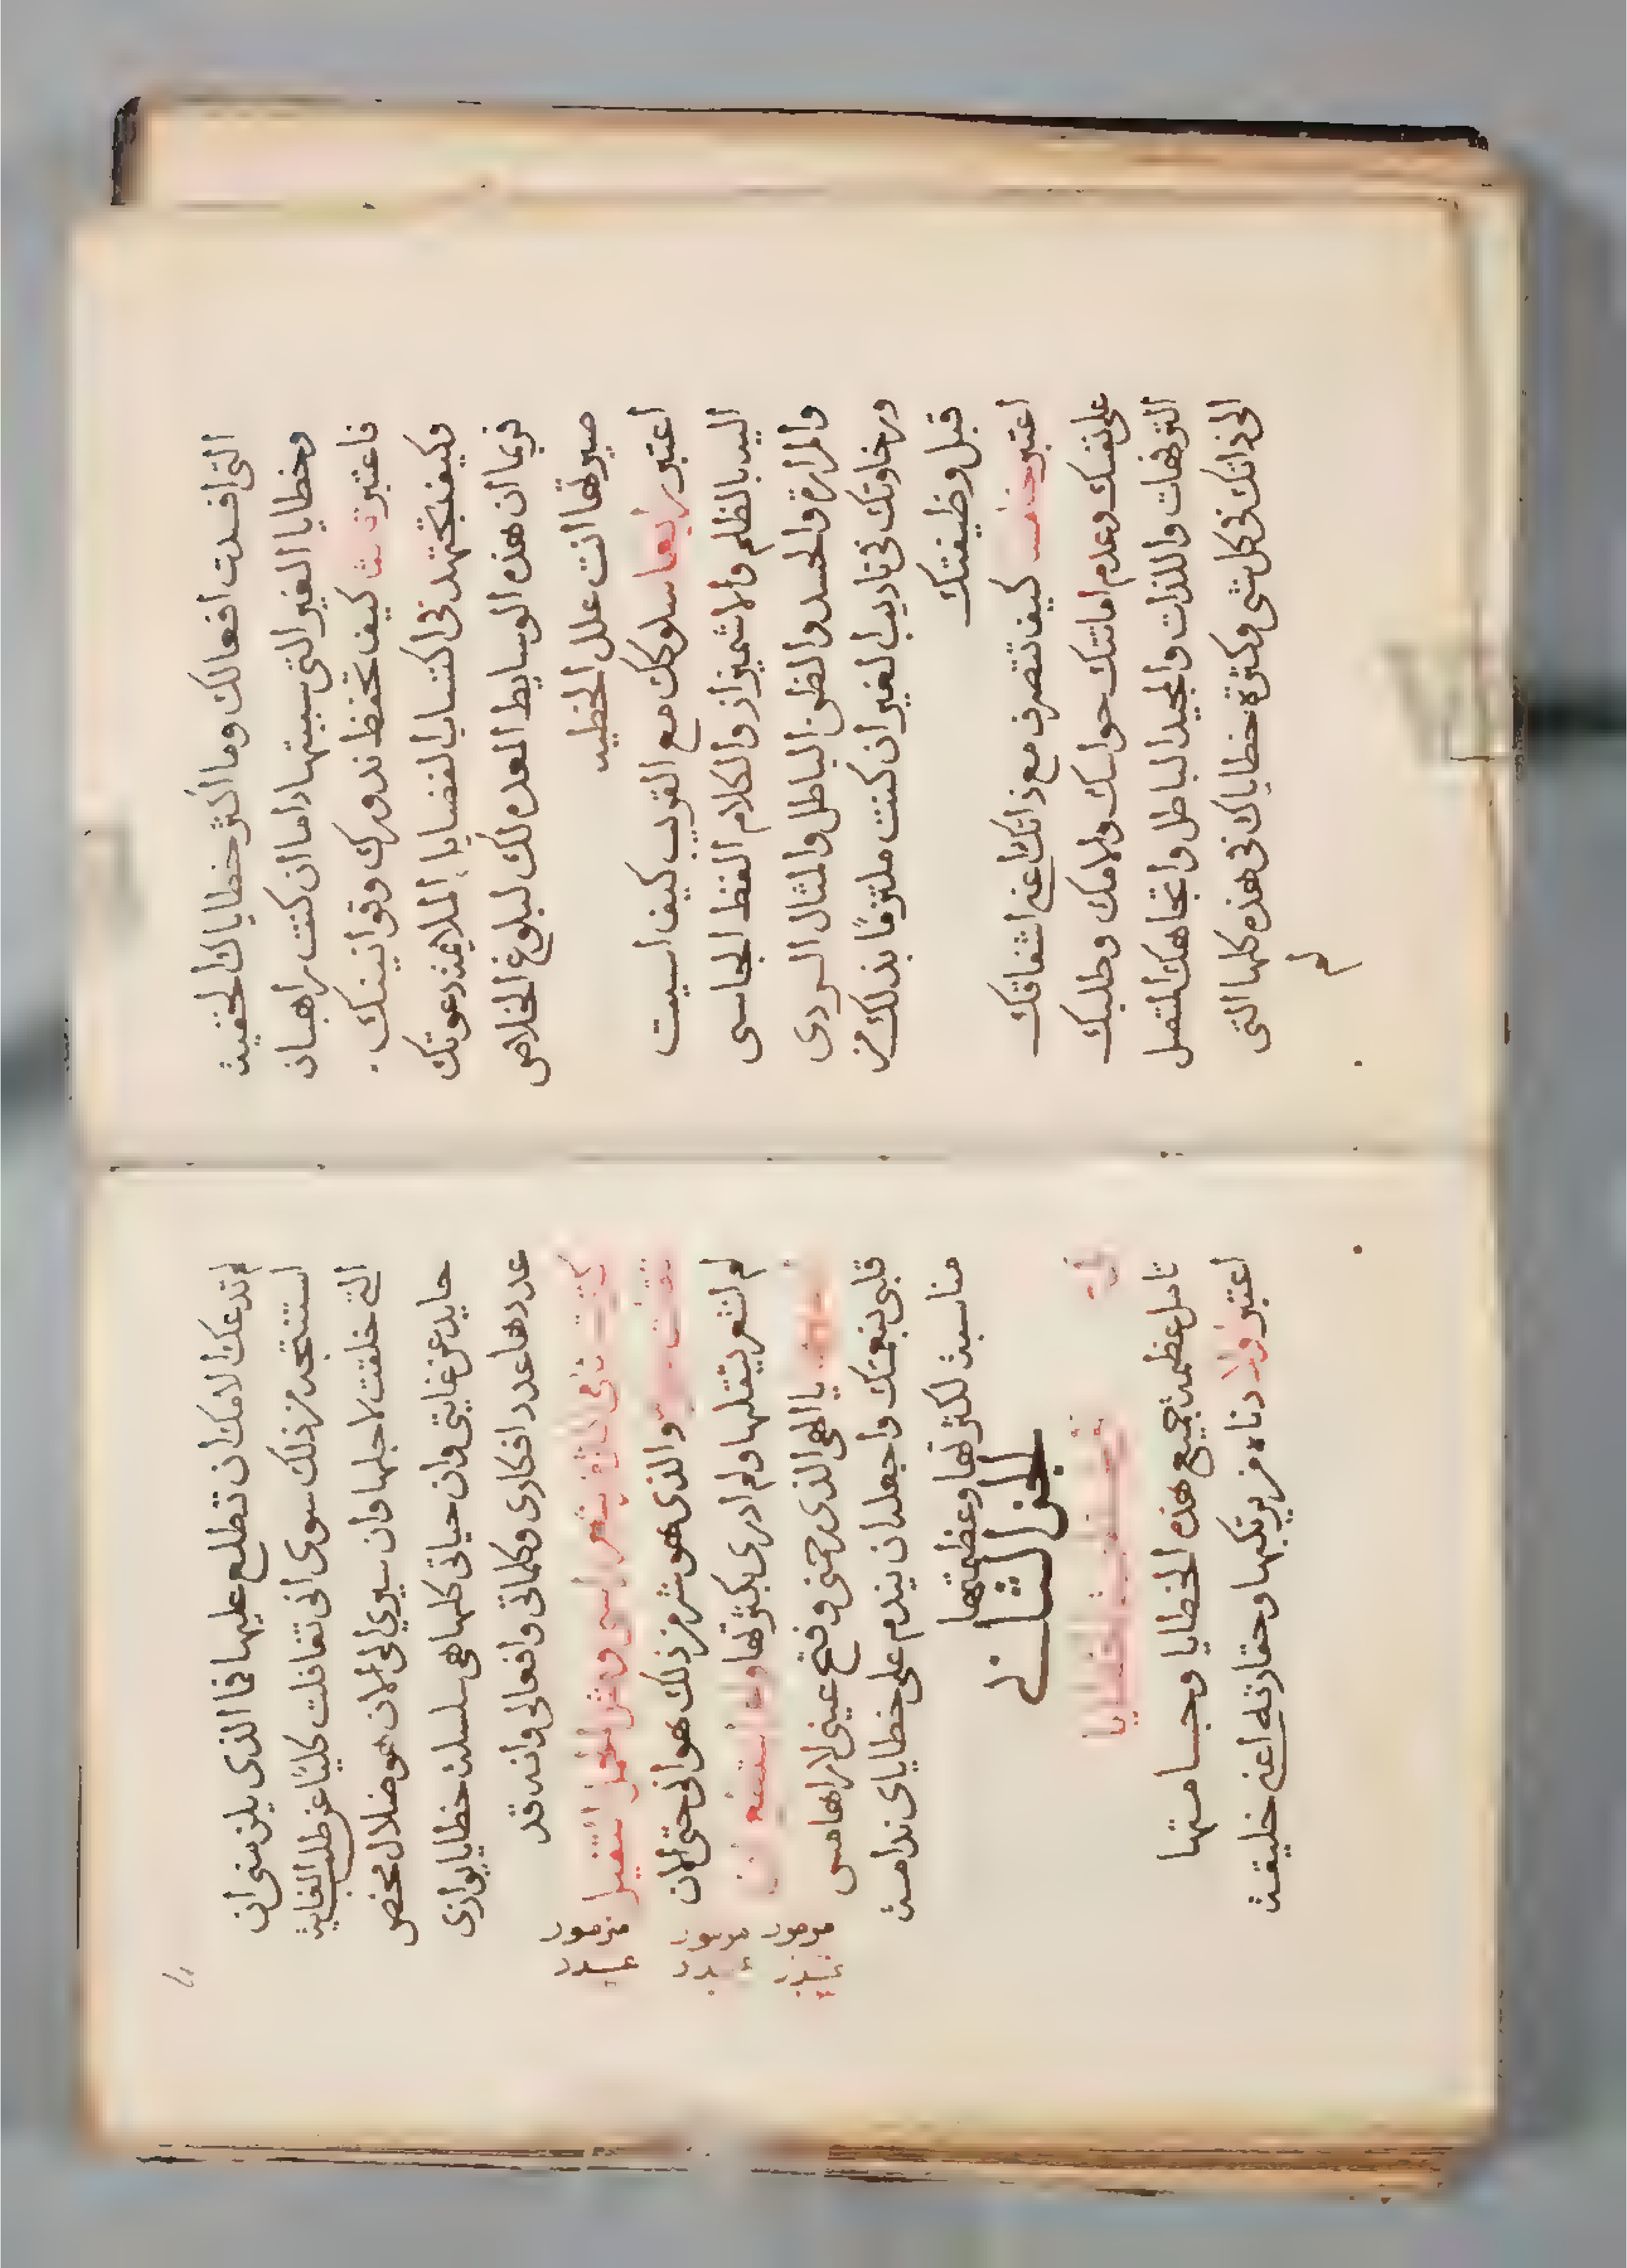 التى افسدت افعالك وما اكثر خطاياك الخفيه
وخطايا الغير التى سببتها اما ان كنت راهبا
فاعتبر كيف تحفظ ندورك وقوانينك
وكيف تجتهد فى اكتساب الفضايل الملايمه دعوتك
فربما ان هذه الوسايط المعده لك لبلوغ الخلاص
صيرتها انت علل الخطيه
اعتبر رابعا سلوكك مع القريب كيف اسيت
اليه بالظلم والاشميزاز والكلام الفظ الجاسى
والمرارة والحسد والظن الباطل والمثال الردى
ورخاوتك فى تاديب الغير ان كنت ملتزمًا بذلك من
قبل وظيفتك
اعتبر خامسا كيف تتصرف مع ذاتك اعنى اشفاقك
على نفسك وعدم اماتتك حواسك والامك وطلبك
الترفهات واللذات والمجد الباطل واتجاهك المتصل
الى ذاتك فى كل شى وكثرة خطاياك فى هذه كلها التى
لم
لم تدعك الامك ان تطلع عليها فما الذى يلزمنى ان
استنتجه من ذلك سوى انى تغافلت كليًا عن طلب الغايه
التى خلقت لاجلها وان سيرى الى الان هو ضلال محض
حايد عن غايتى وان حياتى كلها هى سلسلة خطايا يوازى
عددها عدد افكارى وكلماتى وافعالى وانه قد
كثرت اثامى اكثر من شعر راسى ومثل الحمل الثقيل
ثقلت والذى هو شر من ذلك هو انى حتى الان
لم اشعر بثقلها ولم ادرى بكثرتها ولم استطع ان
يا الهى الذى رحمنى وفتح عينى لاراها مس
قلبى بنعمتك واجعله ان يندم على خطاياى ندامة
مناسبة لكثرتها وعظمتها
الجز الثانى
فى عظمة الخطايا
تامل عظمة جميع هذه الخطايا وجسامتها
اعتبر اولا دناة من يرتكبها وحقارته اعنى خليقة